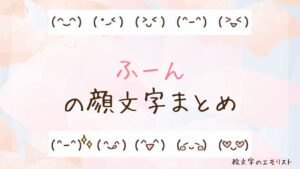 (^‿^) (•ᴗ<) (>ᴗ<) (^-^) (>ᴗ<)
ふーん
の顔文字まとめ
(^-^)✨ (^ᴗ^) (^▽^) (◡ᴗ◡) (♡ᴗ♡)
絵文字のエモリスト